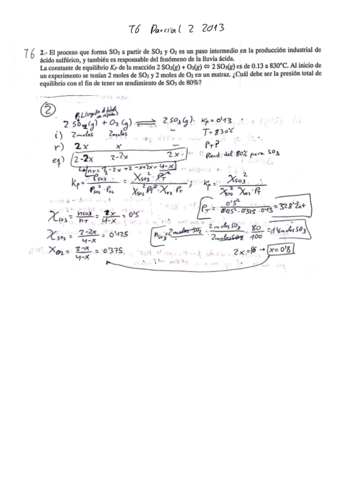 T6 Parcial 2 2013
T6 2.- El proceso que forma SO₃ a partir de SO₂ y O₂ es un paso intermedio en la producción industrial de
ácido sulfúrico, y también es responsable del fenómeno de la lluvia ácida.
La constante de equilibrio Kp de la reacción 2 SO₂(g) + O₂(g) ⇌ 2 SO₃(g) es de 0.13 a 830°C. Al inicio de
un experimento se tenían 2 moles de SO₂ y 2 moles de O₂ en un matraz. ¿Cuál debe ser la presión total de
equilibrio con el fin de tener un rendimiento de SO₃ de 80%?
②
2 SO₂(g) + O₂(g) ⇌ 2 SO₃(g) Kp = 0'13
i) 2moles 2moles - T = 830°C
r) 2x x - PT?
eq) 2-2x 2-x 2x Rend. del 80% para SO₃
Kp = P²SO₃ / P²SO₂ · PO₂ = X²SO₃ P²T / X²SO₂ P²T · XO₂ PT ; Kp = X²SO₃ / X²SO₂ XO₂ · PT
XSO₃ = nSO₃ / nT = 2x / 4-x = 0'5
XSO₂ = 2-2x / 4-x = 0'125
XO₂ = 2-x / 4-x = 0'375
PT = 0'5² / 0'125² · 0'375 · 0'13 = 328'2 at
nSO₃ = 2moles SO₂ · 2moles SO₃ / 2moles SO₂ · 80 / 100 = 1'6 moles SO₃
x = 0'8